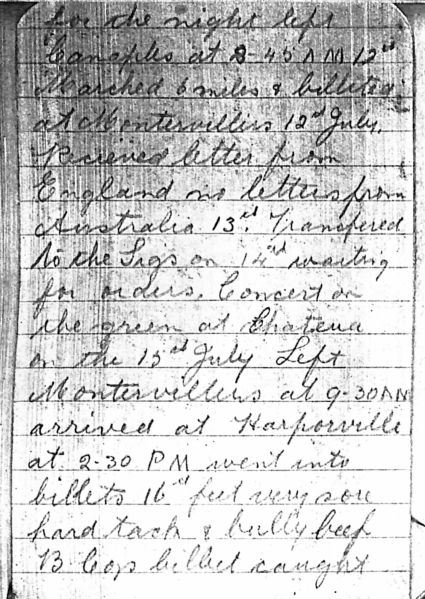 for the night left
Canaples at 8-45 AM 12nd
Marched 6 miles & billeted
at Montervillers 12nd July.
Recieved letter from
England no letters from
Australia 13rd. Transfered
to the Sigs on 14rd waiting
for orders. Concert on
the green at Chateua
on the 15rd July Left
Montervillers at 9-30 AM
arrived at Harporville
at 2-30 PM went into
billets 16rd feet very sore
hard tack & bully beef
B Coys billet caught